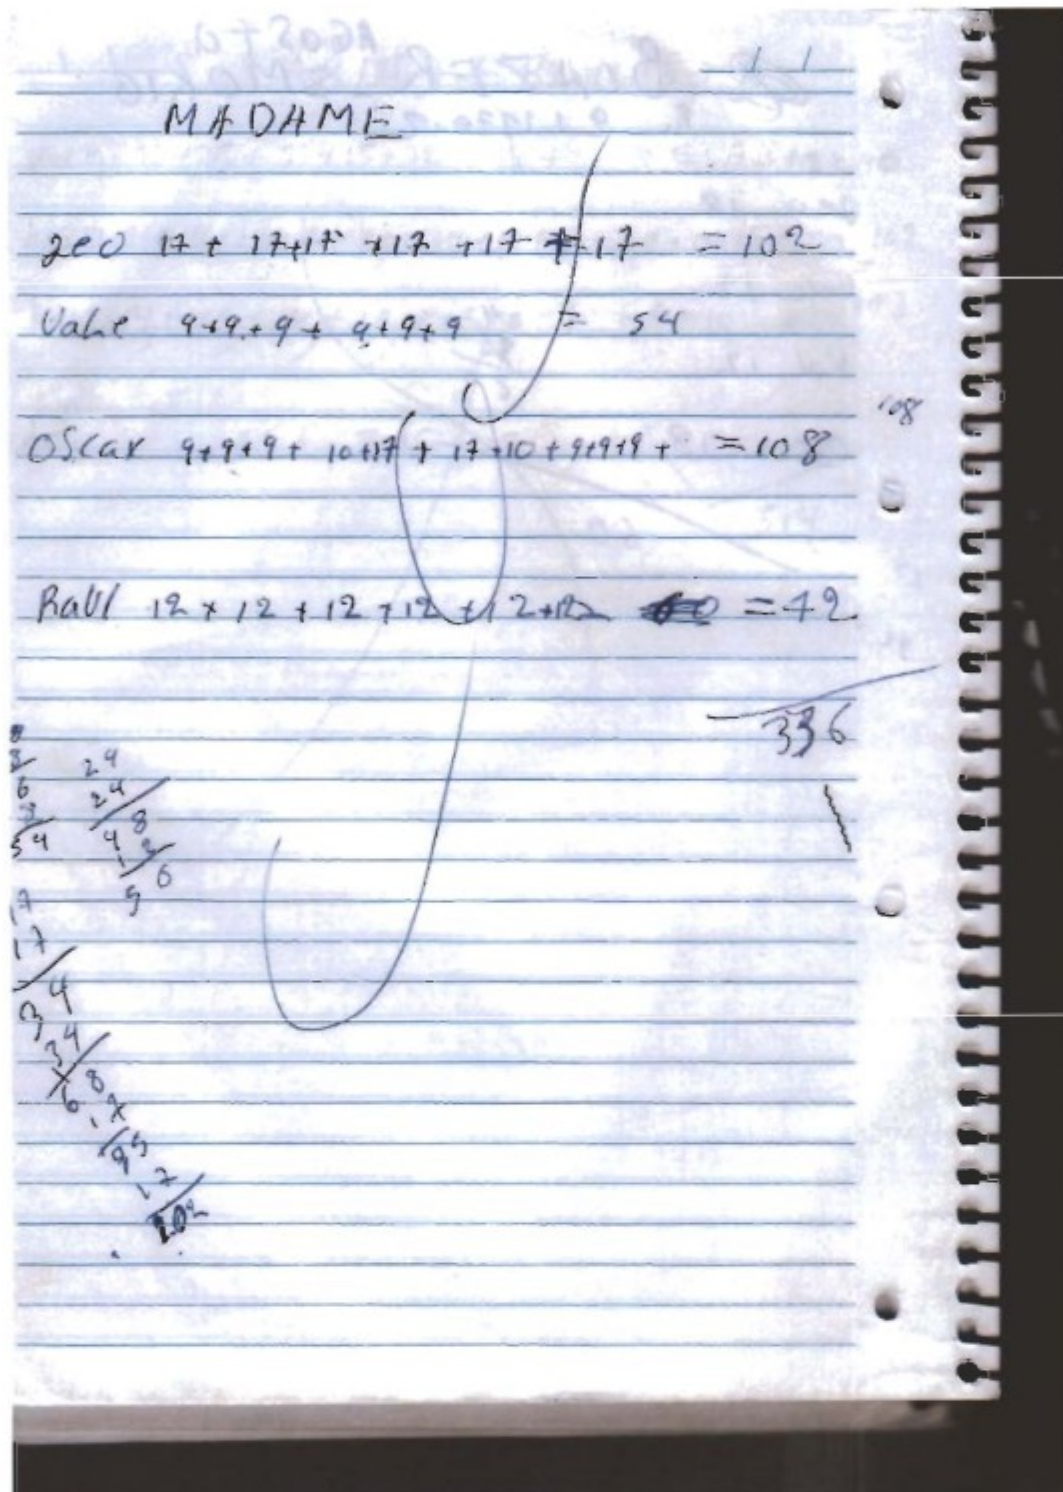 MADAME
geo 17 + 17+17 +17 +17 +17 = 102
Vahe 9+9+9+ 9+9+9 = 54
108
OSCar 9+9+9+ 10+17 + 17+10 + 9+9+9 + = 108
RaUl 12 + 12 + 12 +12 +12+12 = 72
336
24
24
48
56
54
17
17
34
34
68
17
85
17
102